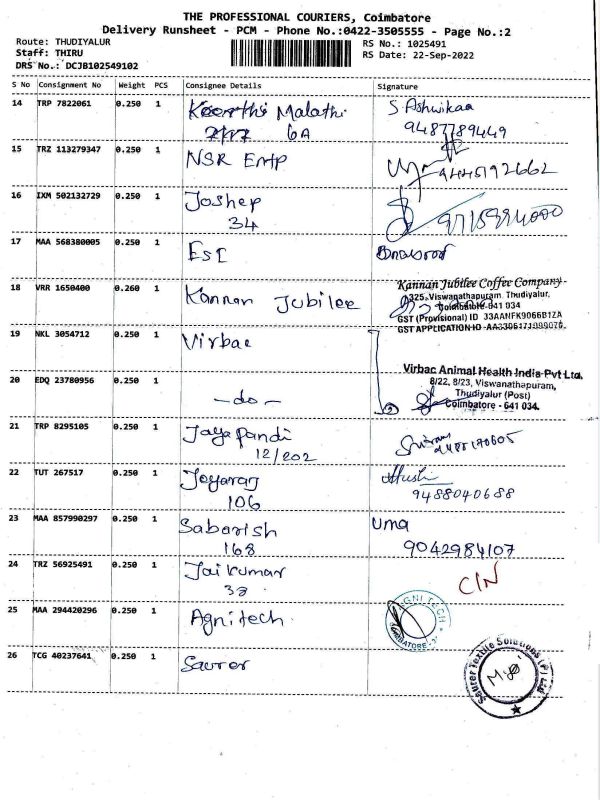 THE PROFESSIONAL COURIERS, Coimbatore
Delivery Runsheet - PCM - Phone No.:0422-3505555 - Page No.:2
Route: THUDIYALUR
Staff: THIRU
DRS No.: DCJB102549102
RS No.: 1025491
RS Date: 22-Sep-2022
S No Consignment No Weight PCS Consignee Details Signature
14 TRP 7822061 0.250 1 Keerthi Malathi S. Ashwikaa
6A 9487789449
15 TRZ 113279347 0.250 1 NSR Entp 9445192662
16 IXM 502132729 0.250 1 Joshep
34 9715994000
17 MAA 568380005 0.250 1 ESI
18 VRR 1650400 0.260 1 Kannan Jubilee
Kannan Jubilee Coffee Company
325, Viswanathapuram, Thudiyalur,
Coimbatore-641 034
GST (Provisional) ID 33AANFK9066B1ZA
GST APPLICATION ID
19 NKL 3054712 0.250 1 Virbac
Virbac Animal Health India Pvt Ltd.
8/22, 8/23, Viswanathapuram,
Thudiyalur (Post)
Coimbatore - 641 034.
20 EDQ 23780956 0.250 1 -do-
21 TRP 8295105 0.250 1 Jayapandi
12/202
22 TUT 267517 0.250 1 Jeyaraj
106 9488040688
23 MAA 857990297 0.250 1 Sabarish Uma
168 9042984107
24 TRZ 56925491 0.250 1 Jaikumar C/N
38
25 MAA 294420296 0.250 1 Agnitech
AGNI TECH
COIMBATORE
26 TCG 40237641 0.250 1 Saurer
Saurer Textile Solutions (P) Ltd